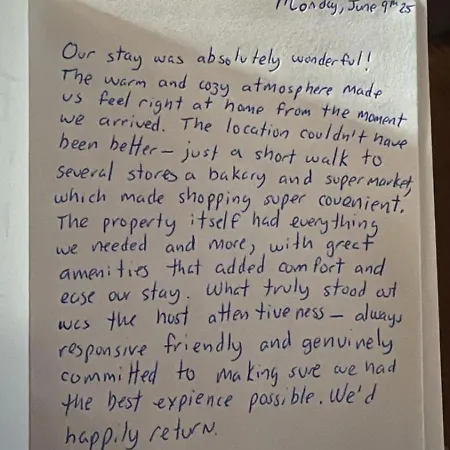 Monday, June 9th 25
Our stay was absolutely wonderful!
The warm and cozy atmosphere made
us feel right at home from the moment
we arrived. The location couldn't have
been better — just a short walk to
several stores a bakery and supermarket,
which made shopping super covenient.
The property itself had everything
we needed and more, with great
amenities that added comfort and
ease our stay. What truly stood out
was the host attentiveness — always
responsive friendly and genuinely
committed to making sure we had
the best expience possible. We'd
happily return.